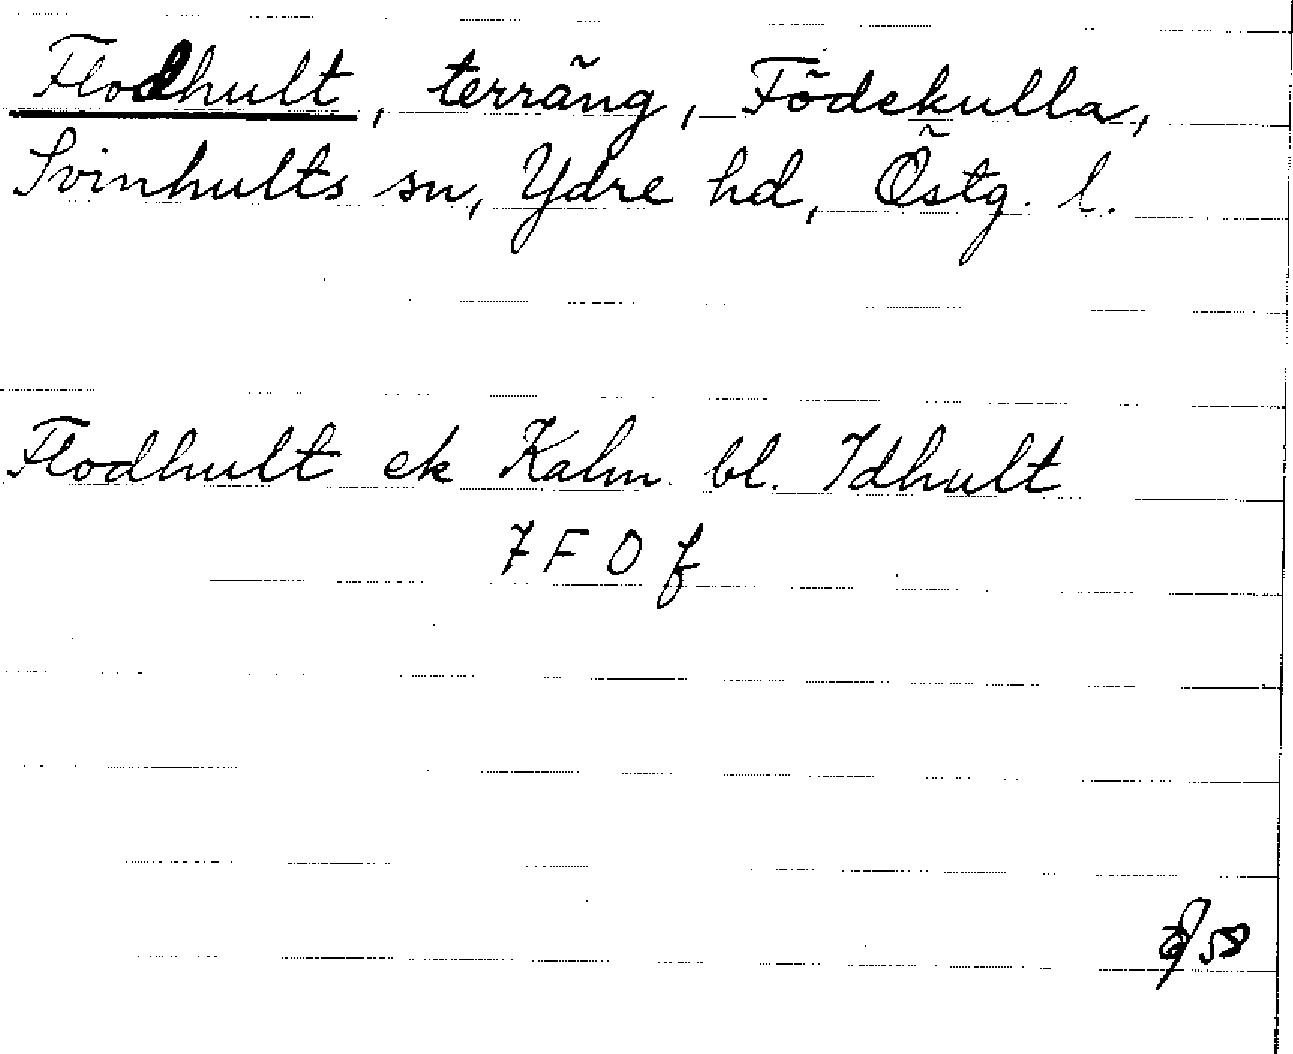 Flodhult, terräng, Födekulla,
Svinhults sn, Ydre hd, Östg. l.
Flodhult ek Kalm bl. Idhult
7 F 0 f
58